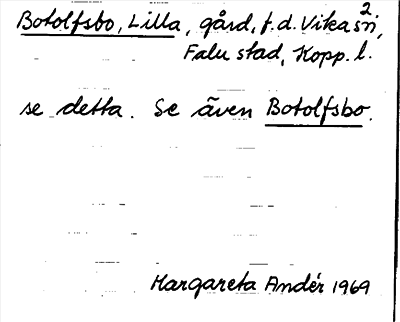 Botolfsbo, Lilla, gård, f.d. Vika sn,
2
Falu stad, Kopp. l.
se detta. Se även Botolfsbo.
Margareta Andér 1969